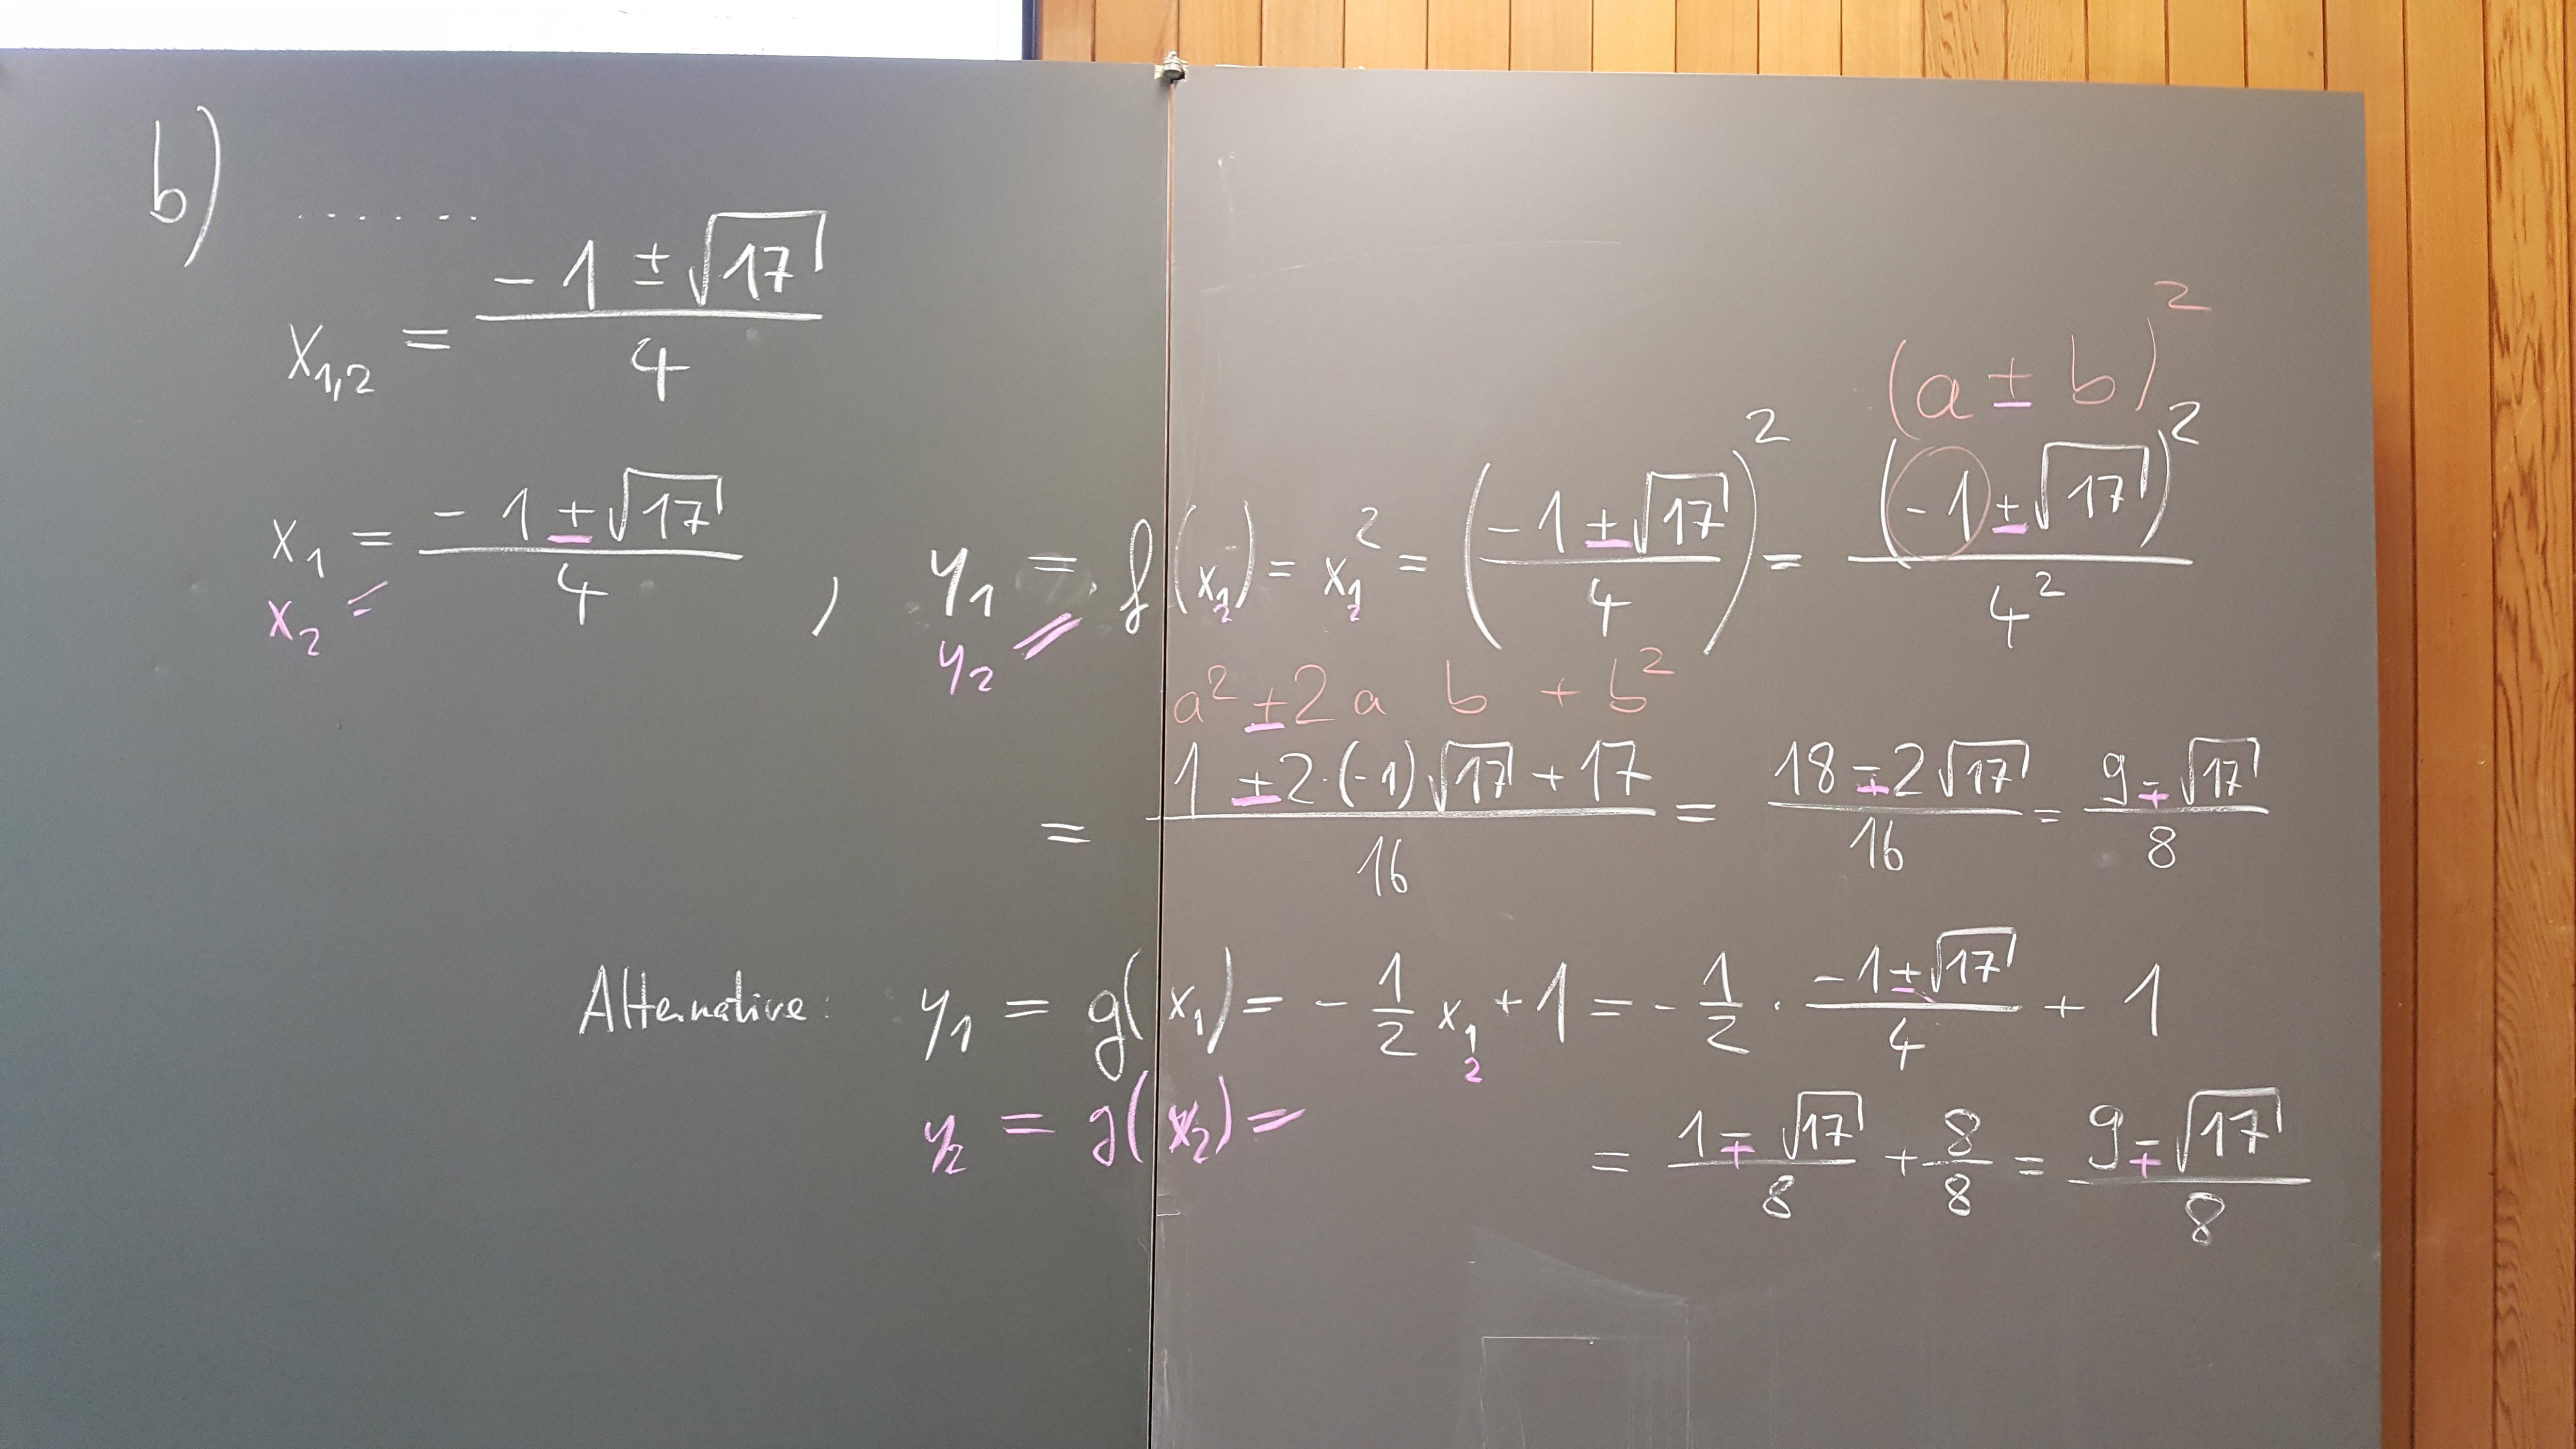 b) ......
x₁,₂ = (-1 ± √17)/4
(a ± b)²
x₁ = (-1 ± √17)/4 , y₁ = f(x₁) = x₁² = ((-1 ± √17)/4)² = (-1 ± √17)²/4²
x₂ = y₂ = ₂ ₂
a² ± 2 a b + b²
= (1 ± 2·(-1)√17 + 17)/16 = (18 ∓ 2√17)/16 = (9 ∓ √17)/8
Alternative: y₁ = g(x₁) = - 1/2 x₁ + 1 = - 1/2 · (-1 ± √17)/4 + 1
₂
y₂ = g(x₂) =
= (1 ∓ √17)/8 + 8/8 = (9 ∓ √17)/8